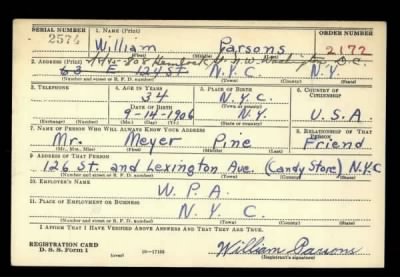 SERIAL NUMBER 1. NAME (Print) ORDER NUMBER
2574 William Parsons 2172
(First) (Middle) (Last)
2. ADDRESS (Print) N.W. Washington, D.C.
63 E. 124 St. N.Y.C. N.Y.
(Number and street or R. F. D. number) (Town) (County) (State)
3. TELEPHONE 4. AGE IN YEARS 5. PLACE OF BIRTH 6. COUNTRY OF CITIZENSHIP
34 N.Y.C.
DATE OF BIRTH (Town or county)
9-14-1906 N.Y. U.S.A.
(Exchange) (Number) (Mo.) (Day) (Yr.) (State or country)
7. NAME OF PERSON WHO WILL ALWAYS KNOW YOUR ADDRESS 8. RELATIONSHIP OF THAT PERSON
Mr. Meyer Pine Friend
(Mr., Mrs., Miss) (First) (Middle) (Last)
9. ADDRESS OF THAT PERSON
126 St. and Lexington Ave. (Candy Store) N.Y.C
(Number and street or R. F. D. number) (Town) (County) (State)
10. EMPLOYER'S NAME
W.P.A.
11. PLACE OF EMPLOYMENT OR BUSINESS
N.Y.C.
(Number and street or R. F. D. number) (Town) (County) (State)
I AFFIRM THAT I HAVE VERIFIED ABOVE ANSWERS AND THAT THEY ARE TRUE.
REGISTRATION CARD
D. S. S. Form 1 (over) 16—17105 William Parsons
(Registrant's signature)